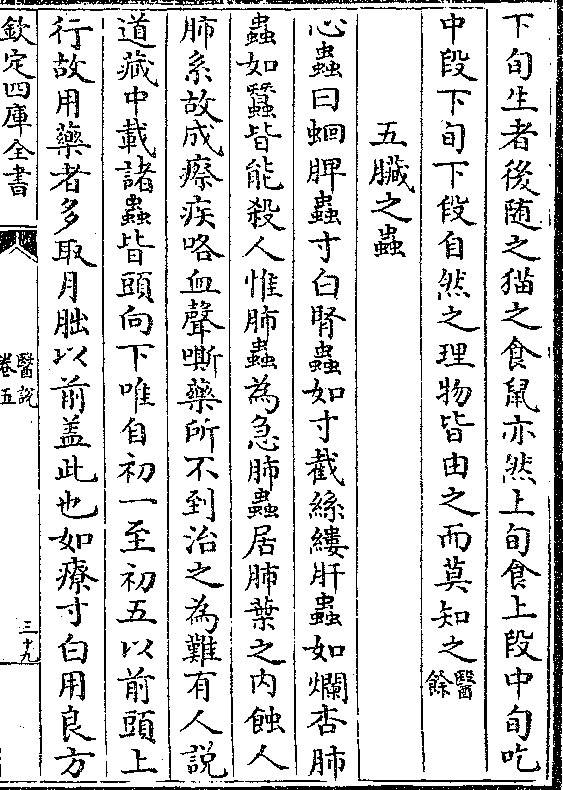 下旬生者後随之猫之食鼠亦然上旬食上段中旬吃
中段下旬下段自然之理物皆由之而莫知之醫餘
五臟之蟲
心蟲曰蛔脾蟲寸白腎蟲如寸截絲縷肝蟲如爛杏肺
蟲如蠶皆能殺人惟肺蟲為急肺蟲居肺葉之内蝕人
肺系故成瘵疾咯血聲嘶藥所不到治之為難有人説
道藏中載諸蟲皆頭向下唯自初一至初五以前頭上
行故用藥者多取月朏以前盖此也如療寸白用良方
欽定四庫全書
醫説
卷五
三十九